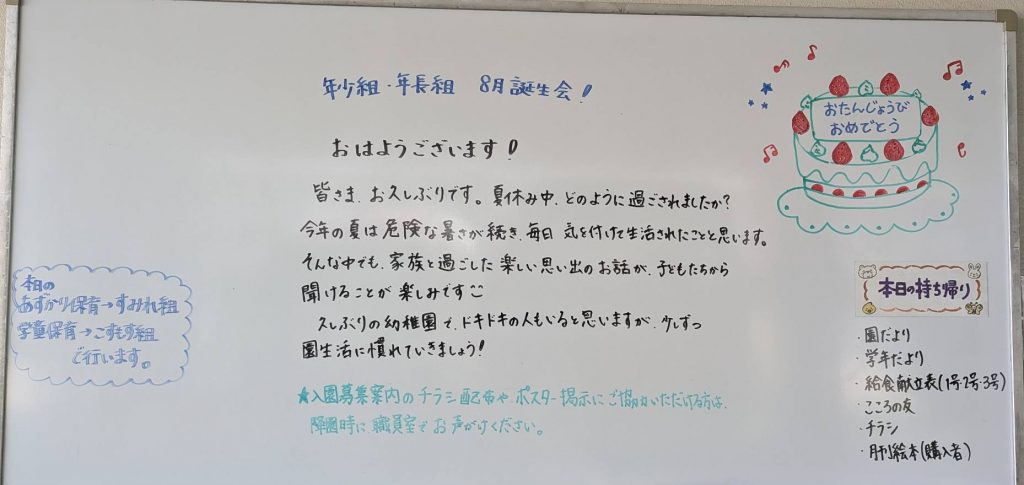 年少組・年長組 8月誕生会!
おはようございます!
皆さま、お久しぶりです。夏休み中、どのように過ごされましたか?
今年の夏は危険な暑さが続き、毎日気を付けて生活されたことと思います。
そんな中でも、家族と過ごした楽しい思い出のお話が、子どもたちから
聞けることが楽しみです
久しぶりの幼稚園で、ドキドキの人もいると思いますが、少しずつ
園生活に慣れていきましょう!
★入園募集案内のチラシ配布や、ポスター掲示にご協力いただける方は、
降園時に、職員室でお声がけください。
本日の
あずかり保育→すみれ組
学童保育→こすもす組
で行います。
おたんじょうび
おめでとう
本日の持ち帰り
・園だより
・学年だより
・給食献立表(1号・2号・3号)
・こころの友
・チラシ
・月刊絵本(購入者)